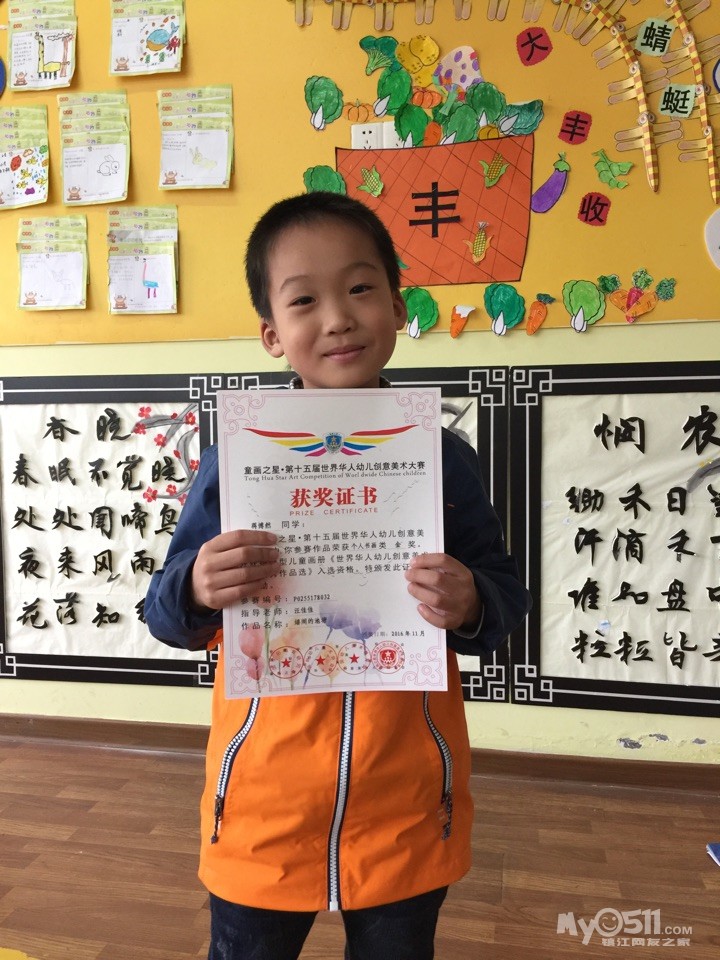 大
丰
收
丰
蜻
蜓
童画之星•第十五届世界华人幼儿创意美术大赛
Tong Hua Star Art Competition of Worl dwide Chinese children
获奖证书
PRIZE CERTIFICATE
蒋博然 同学:
之星•第十五届世界华人幼儿创意美
你参赛作品荣获个人书画类 金 奖。
型儿童画册《世界华人幼儿创意美
作品选》入选资格，特颁发此证
参赛编号: P0255178032
指导老师:
作品名称:
日期: 2016年11月
春晓
春眠不觉晓
处处闻啼鸟
夜来风雨
花落知
悯农
锄禾日
汗滴禾
谁知盘
粒粒皆
My0511.COM
镇江网友之家